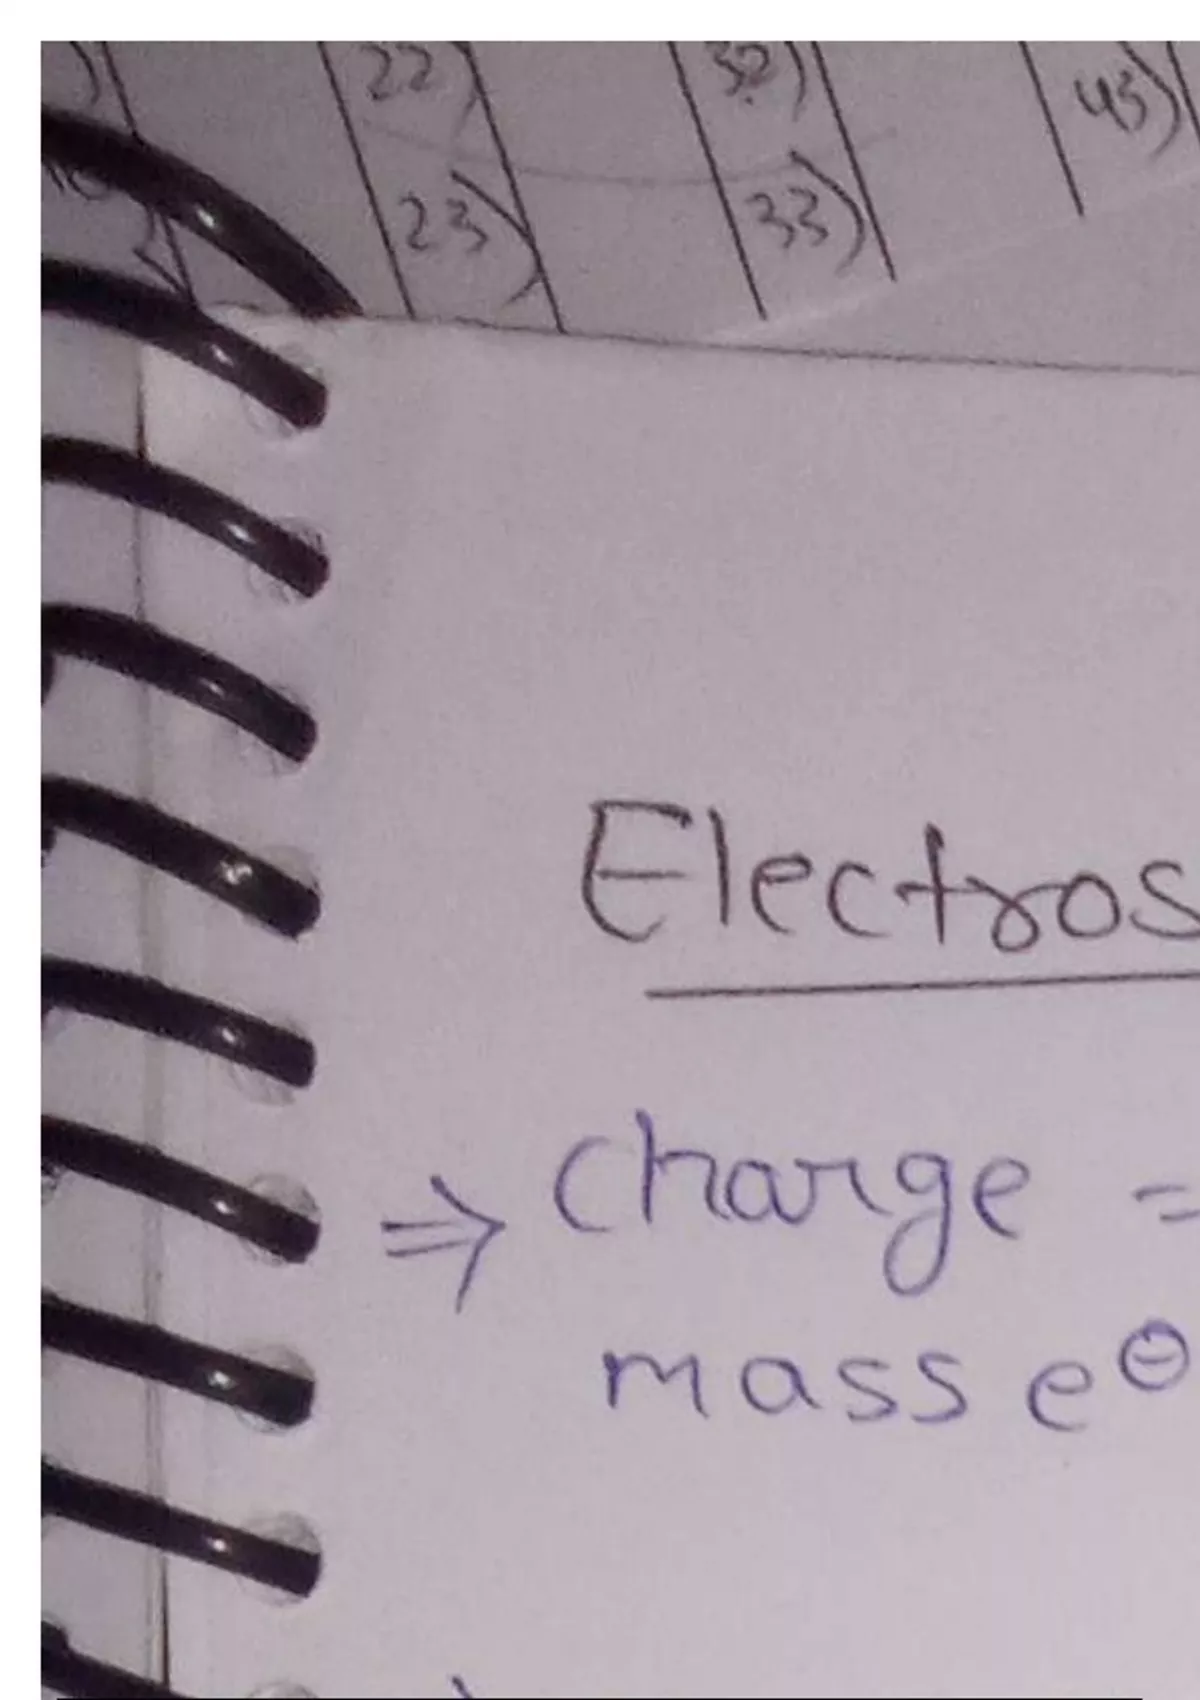 22) 32) 43)
23) 33)
Electros
⇒ Charge =
mass e⊖